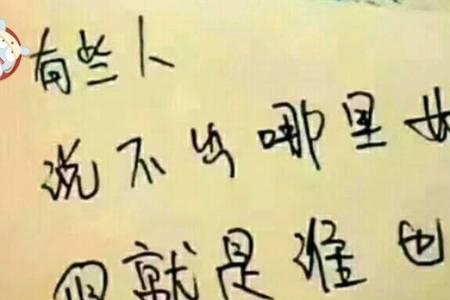 有些人
说不出哪里
就是谁也